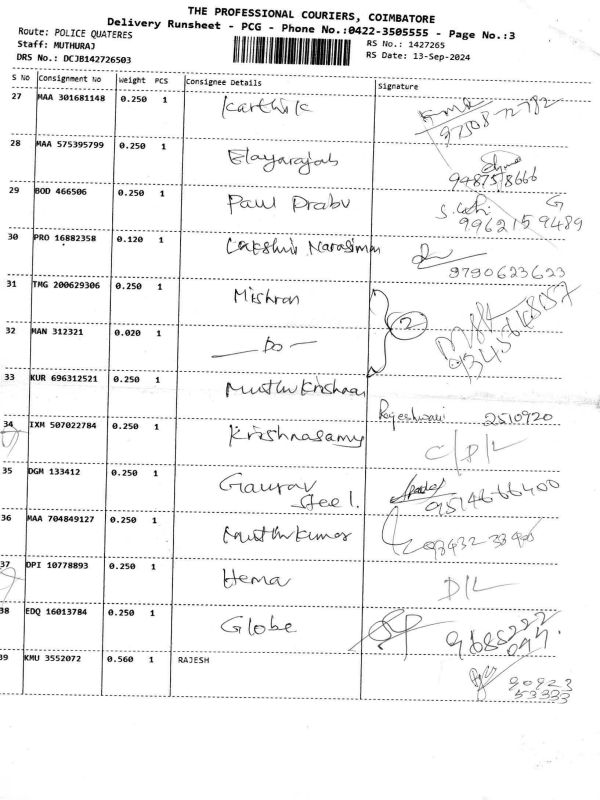 THE PROFESSIONAL COURIERS, COIMBATORE
Delivery Runsheet - PCG - Phone No.:0422-3505555 - Page No.:3
Route: POLICE QUATERES
Staff: MUTHURAJ RS No.: 1427265
DRS No.: DCJB142726503 RS Date: 13-Sep-2024
S No Consignment No Weight PCS Consignee Details Signature
27 MAA 301681148 0.250 1 Karthik
28 MAA 575395799 0.250 1 Elayarajah
9487518666
29 BOD 466506 0.250 1 Paul Prabu
9962159489
30 PRO 16882358 0.120 1 Lakshmi Narasiman
9790623623
31 TMG 200629306 0.250 1 Mithran
2
32 MAN 312321 0.020 1 — Do —
33 KUR 696312521 0.250 1 Muthu Krishnan
Rajeshwari 2510920
34 IXM 507022784 0.250 1 Krishnasamy C/D/L
35 DGM 133412 0.250 1 Gaurav
Steel.
9514666400
36 MAA 704849127 0.250 1 Muthukumar
37 DPI 10778893 0.250 1 Hema D/L
38 EDQ 16013784 0.250 1 Globe
39 KMU 3552072 0.560 1 RAJESH
90923
53333